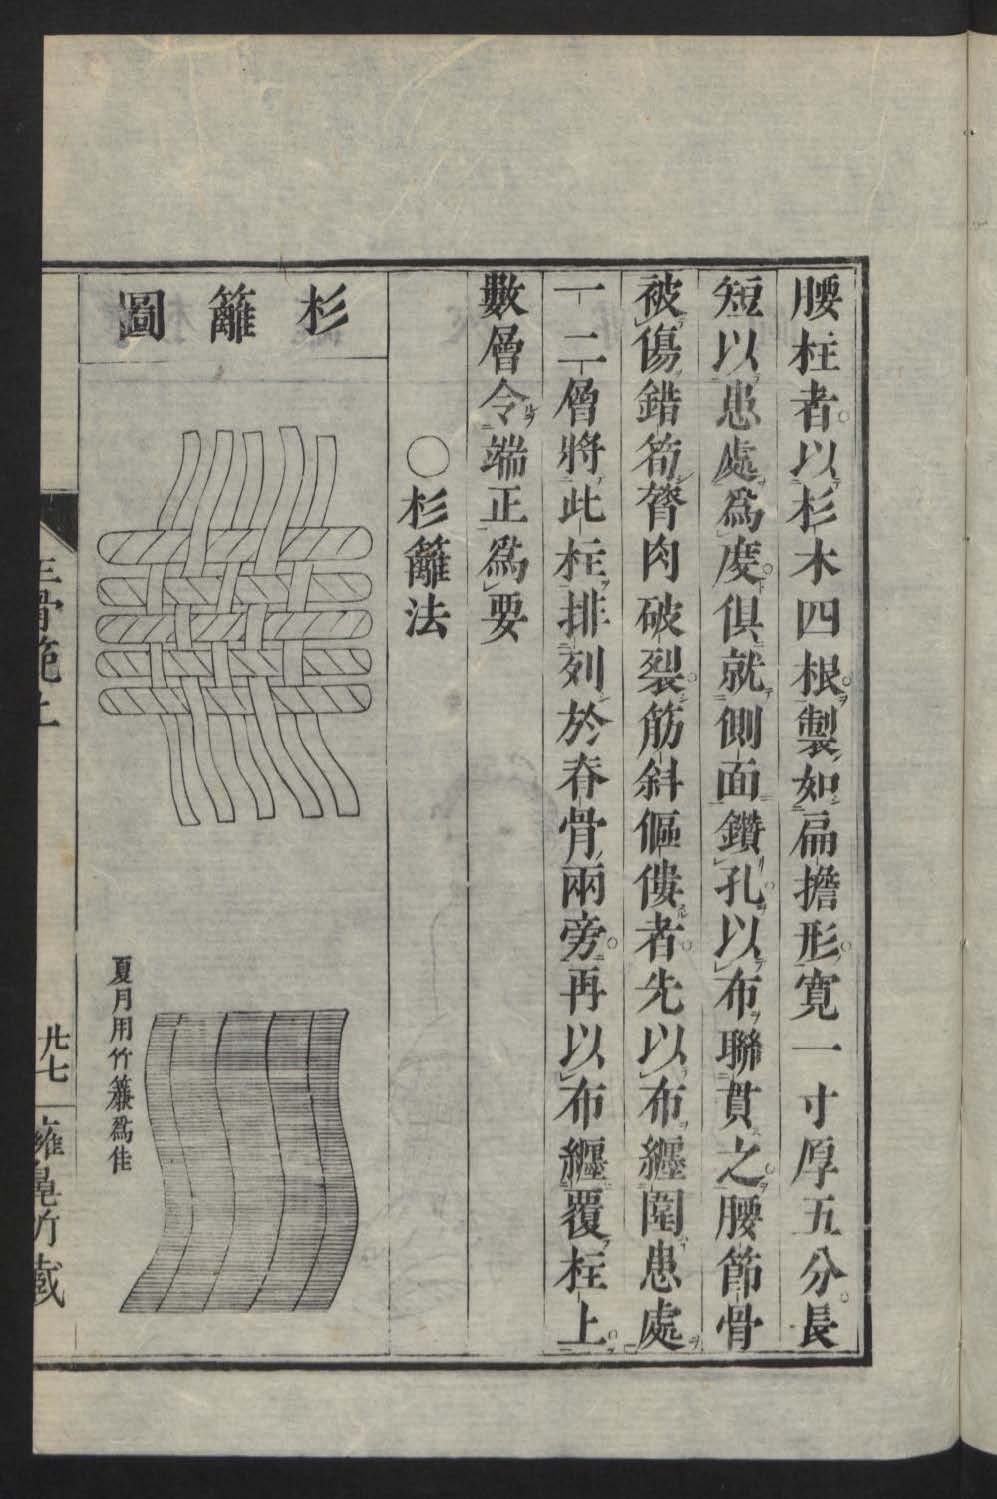 腰柱者以杉木四根製如扁擔形寬一寸厚五分長
短以患處爲度俱就側面鑽孔以布聯貫之腰節骨
被傷錯筍膂肉破裂筋斜傴僂者先以布纒圍患處
一二層將此柱排列於脊骨兩旁再以布纒覆柱上
數層令端正爲要
○杉籬法
杉籬圖
夏月用竹簾爲佳
正骨範上
廿七